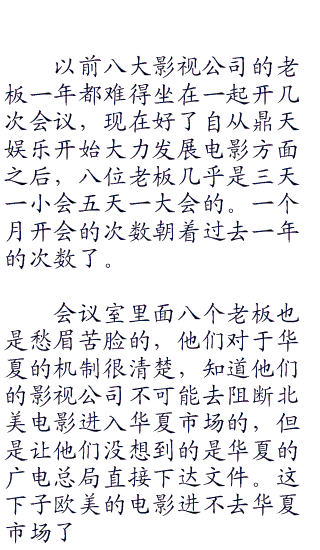 以前八大影视公司的老
板一年都难得坐在一起开几
次会议，现在好了自从鼎天
娱乐开始大力发展电影方面
之后，八位老板几乎是三天
一小会五天一大会的。一个
月开会的次数朝着过去一年
的次数了。
会议室里面八个老板也
是愁眉苦脸的，他们对于华
夏的机制很清楚，知道他们
的影视公司不可能去阻断北
美电影进入华夏市场的，但
是让他们没想到的是华夏的
广电总局直接下达文件。这
下子欧美的电影进不去华夏
市场了